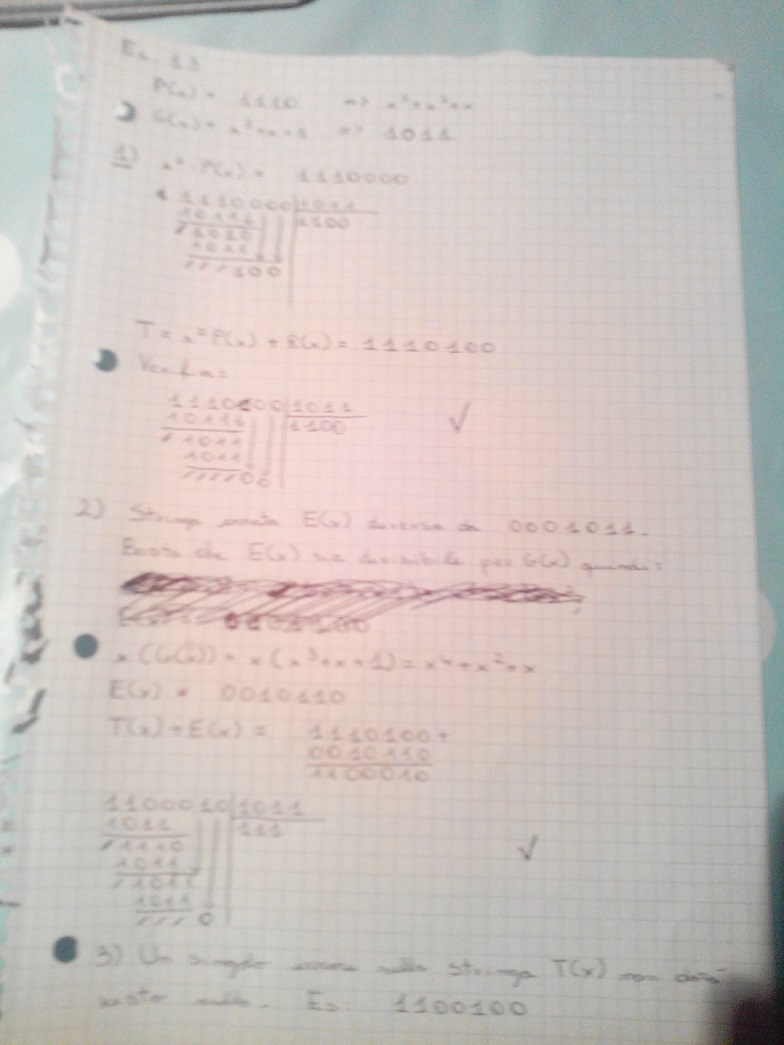 Es. 13
P(x) = 1110 => x³+x²+x
G(x) = x³+x+1 => 1011
1) x³·P(x) = 1110000
1110000 1011
1011 1100
1010
1011
100
T = x³P(x) + R(x) = 1110100
Verifica:
1110100 1011
1011 1100
1011
1011
00
2) Stringa errata E(x) diversa da 0001011.
Basta che E(x) sia divisibile per G(x) quindi:
x(G(x)) = x(x³+x+1) = x⁴+x²+x
E(x) = 0010110
T(x)+E(x) = 1110100+
0010110
1100010
1100010 1011
1011 111
1110
1011
1011
1011
0
3) Un singolo errore nella stringa T(x) non darà
resto nullo. Es 1100100